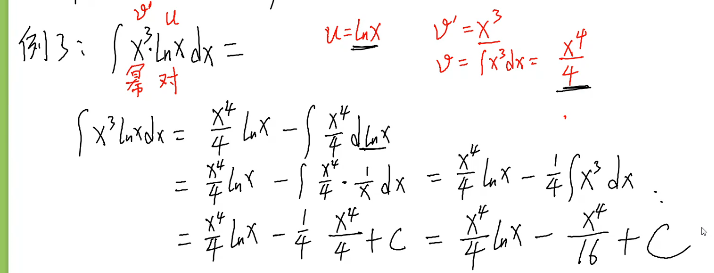 v' u
例3: ∫ x³·lnx dx =
幂 对
u = lnx v' = x³
v = ∫x³dx = x⁴/4
∫x³lnxdx = x⁴/4 lnx - ∫ x⁴/4 dlnx
= x⁴/4 lnx - ∫ x⁴/4 · 1/x dx = x⁴/4 lnx - 1/4 ∫x³ dx
= x⁴/4 lnx - 1/4 x⁴/4 + C = x⁴/4 lnx - x⁴/16 + C